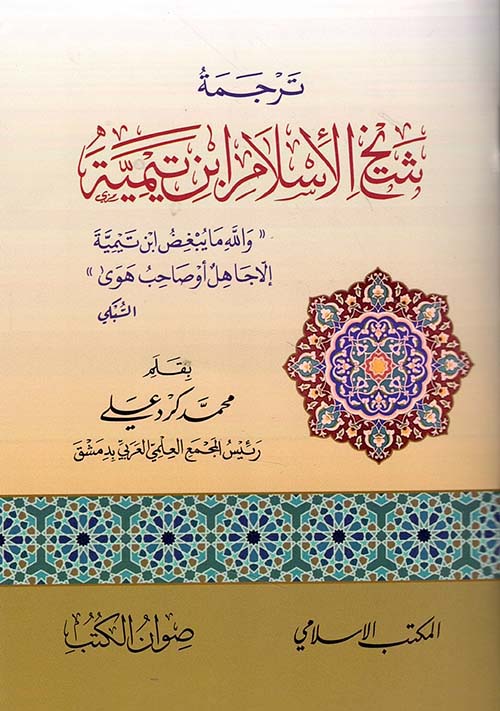 تَرْجَمَةُ
شَيْخِ الْإِسْلَامِ ابْنِ تَيْمِيَّةَ
« وَاللهِ مَا يُبْغِضُ ابْنَ تَيْمِيَّةَ
إِلَّا جَاهِلٌ أَوْ صَاحِبُ هَوَىً »
السُّبْكي
بِقَلَم
محمّد كرد علي
رَئيسُ المَجْمَع العِلمِيّ العَرَبيّ بِدِمَشْق
المكتب الاسلامي
صِوَانُ الكُتُبِ